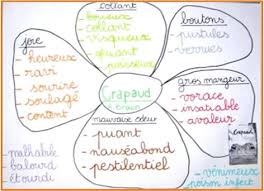 collant
- boueux
- collant
- visqueux
- gluant
- poisseux
boutons
- pustules
- verrues
joie
- heureux
- ravi
- sourire
- soulagé
- content
Crapaud
gros mangeur
- vorace
- insatiable
- avaleur
mauvaise odeur
- puant
- nauséabond
- pestilentiel
- malhabile
- balourd
- étourdi
Crapaud
- venimeux
- poison infect